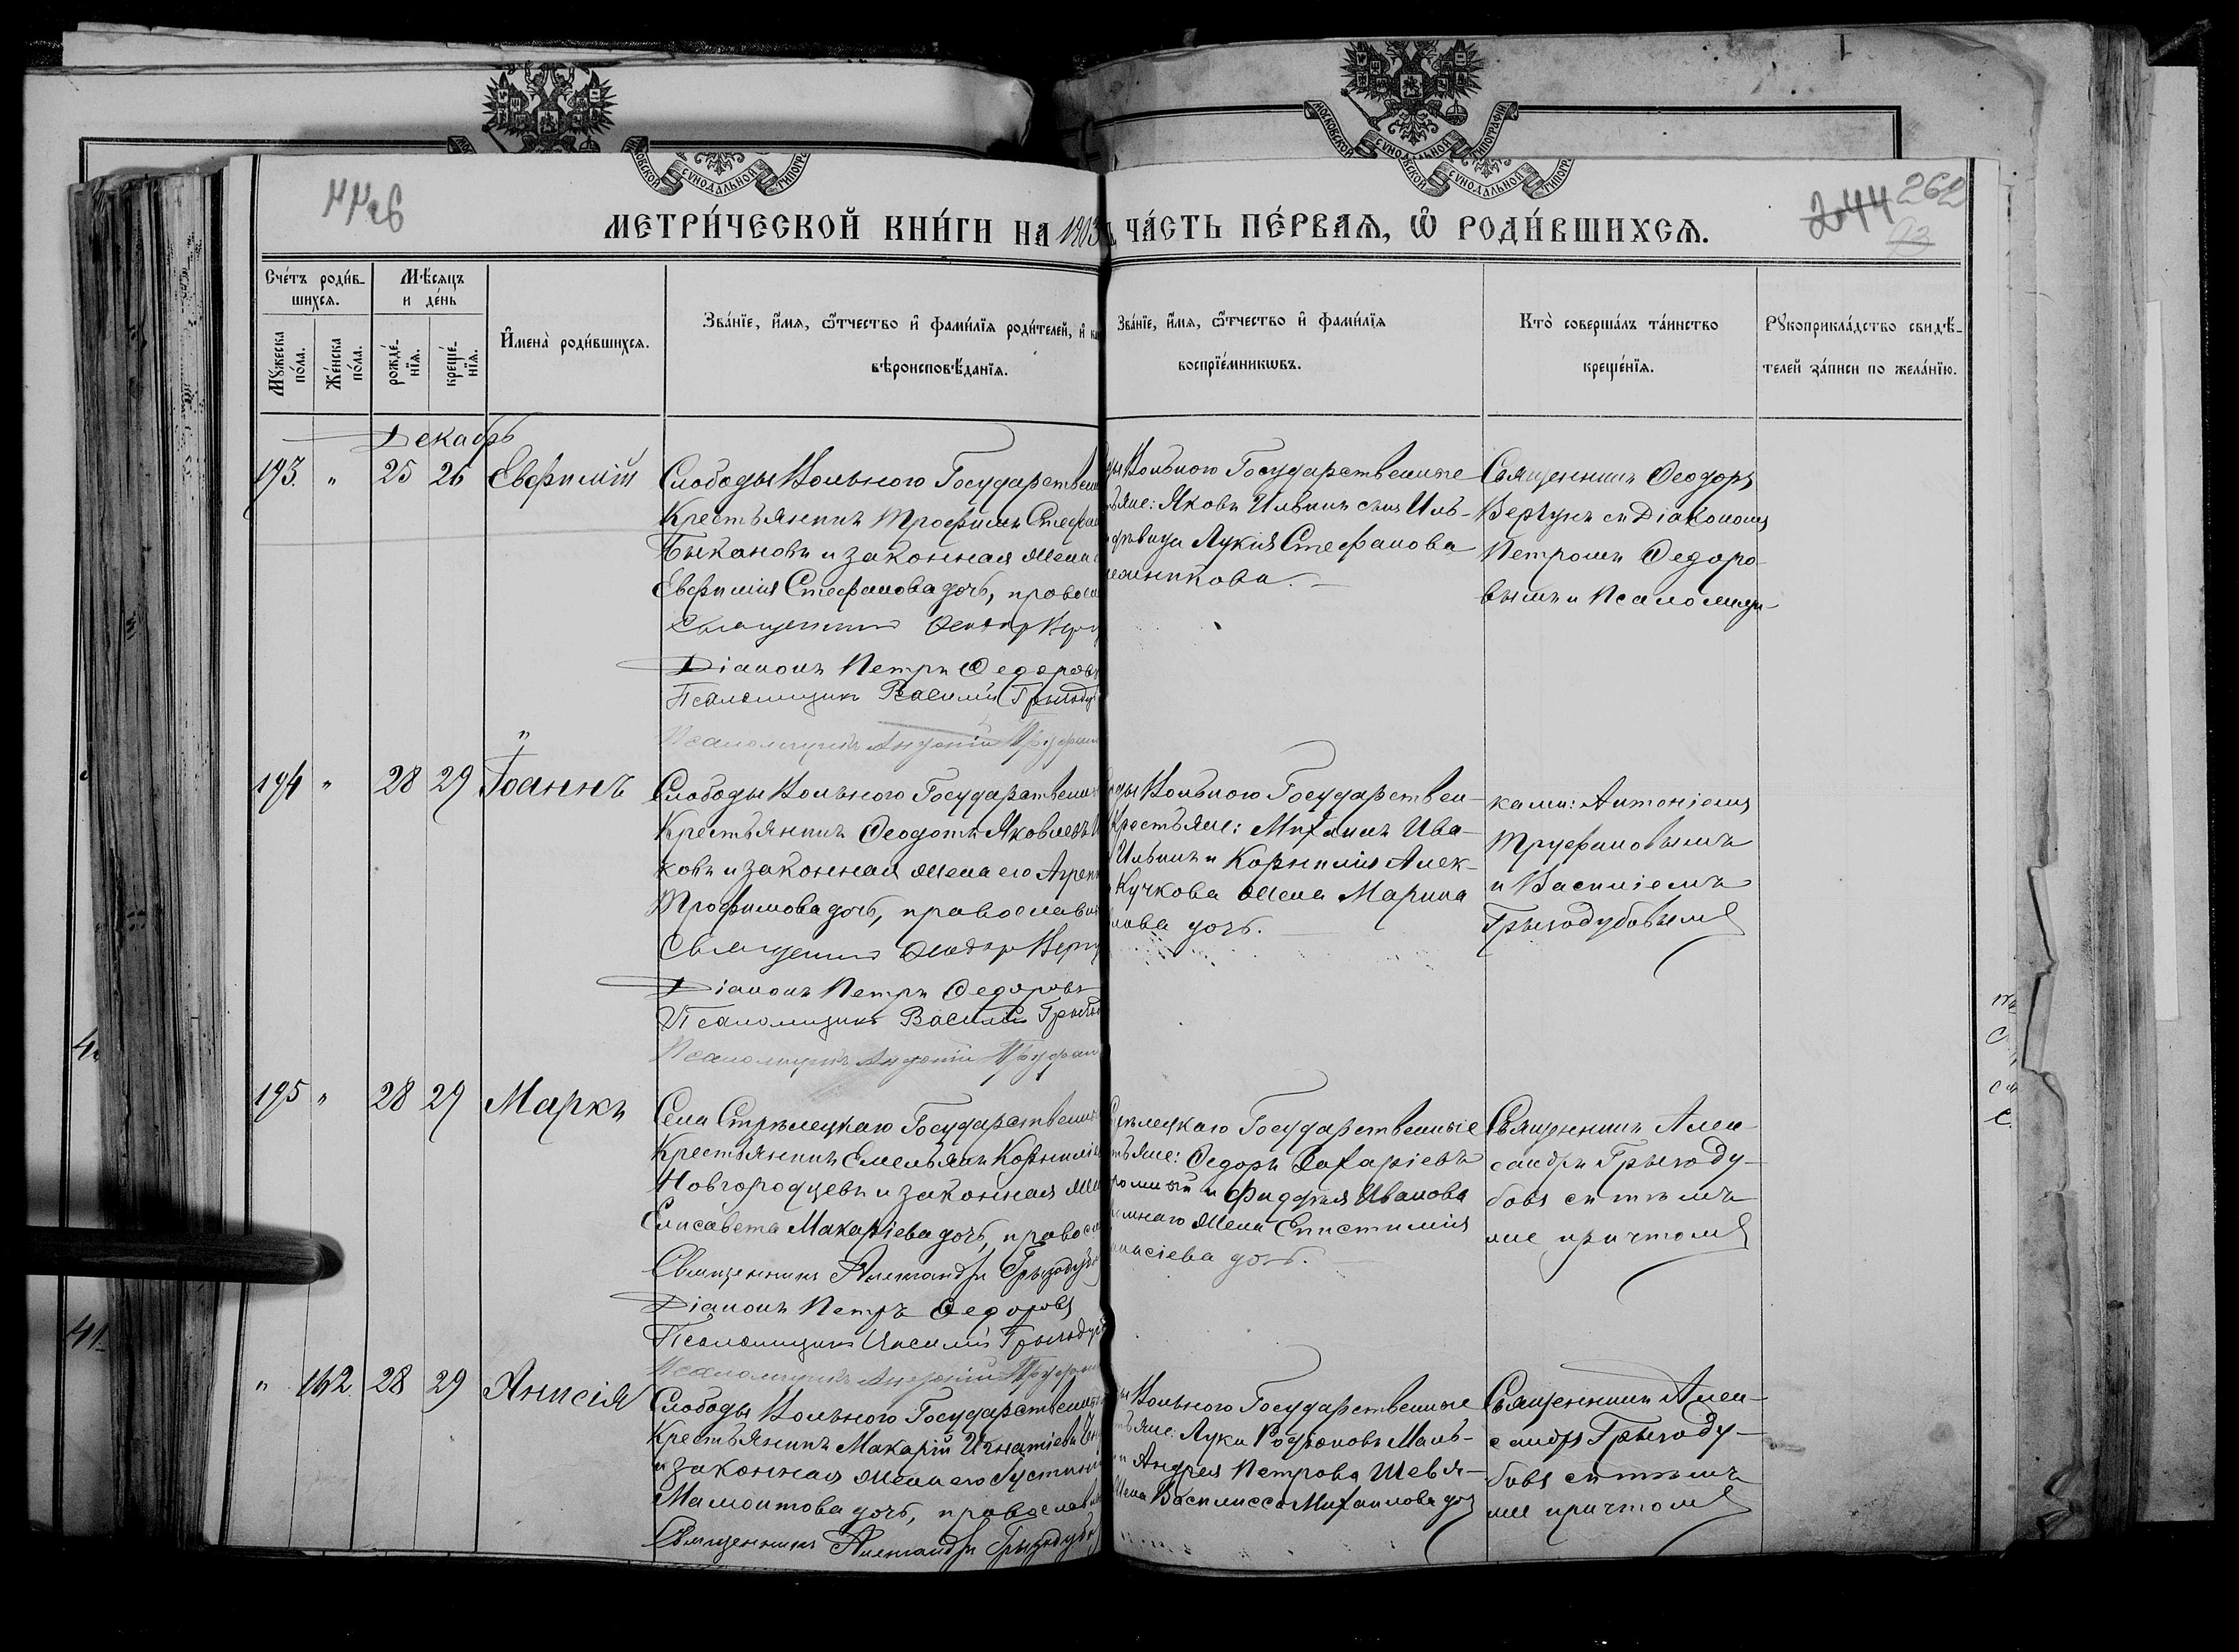 МОСКОВСКОЙ СУНОДАЛЬНОЙ ТИПОГРАФІИ
262
МЕТРИ́ЧЕСКОЙ КНИ́ГИ НА
ЧА́СТЬ ПЕ́РВАѦ, Ѡ҆ РОДИ́ВШИХСѦ.
Сче́тъ роди́в-
шихсѧ.
Мѣ́сѧцъ
и де́нь
Мꙋ́жеска
по́ла.
Же́нска
по́ла.
рожде́-
нїѧ.
креще́-
нїѧ.
И҆мена̀ роди́вшихсѧ.
Зва́нїе, и҆́мѧ, ѻ҆́тчество и҆ фами́лїѧ роди́телей, и҆
вѣроисповѣ́данїѧ.
Зва́нїе, и҆́мѧ, ѻ҆́тчество и҆ фами́лїѧ
воспрїе́мникѡвъ.
Кто̀ соверша́лъ та́инство
креще́нїѧ.
Рꙋкоприкла́дство свидѣ́-
телей за́писи по жела́нїю.
Декабрь
193. " 25 26 Евфимій
Слободы Вольного Государствен
Крестьянинъ Трофимъ Стефан
Быкановъ и законная жена
Евфимія Стефанова дочь, правосл
Священникъ Феодоръ Верг
Діаконъ Петръ Ѳедоровъ
Псаломщикъ Василій Грызоду
Псаломщикъ Антоній Труфан
ды Вольного Государственные
ьяне: Яковъ Ильинъ сынъ Иль-
дѣвица Лукія Стефанова
никова.
Священникъ Ѳеодоръ
Вергунъ съ Діакономъ
Петромъ Ѳедоро-
вымъ и Псаломщи-
194 " 28 29 Іоаннъ
Слободы Вольного Государствен
Крестьянинъ Ѳеодотъ Яковлевъ
ковъ и законная жена его Агрип
Трофимова дочь, православн
Священникъ Феодоръ Верг
Діаконъ Петръ Ѳедоровъ
Псаломщикъ Василій Грызо
Псаломщикъ Антоній Труфан
ды Вольного Государствен-
Крестьяне: Михаилъ Ива-
Ильинъ и Корнилія Алек-
Кучкова жена Марина
лова дочь.
ками: Антоніемъ
Труфановымъ
и Василіемъ
Грызодубовымъ
195 " 28 29 Маркъ
Села Стрѣлецкаго Государствен
Крестьянинъ Емельянъ Корнилі
Новгородцевъ и законная жен
Елисавета Макаріева дочь, правос
Священникъ Александръ Грызодубо
Діаконъ Петръ Ѳедоровъ
Псаломщикъ Василій Грызодуб
Псаломщикъ Антоній Труфан
ѣлецкаго Государственные
ьяне: Ѳедоръ Захаріевъ
и Ивановa
жена Епистимія
насіева дочь.
Священникъ Алек-
сандръ Грызоду-
бовъ съ тѣмъ
же причтомъ
" 162 28 29 Анисія
Слободы Вольного Государственн
Крестьянинъ Макарій Игнатіевъ
и законная жена его Іустин
Мамонтова дочь, православн
Священникъ Александръ Грызодубо
Вольного Государственные
ьяне: Лука Родіоновъ Маль-
Андрея Петрова Шевля-
жена Василисса Михаилова доч
Священникъ Алек-
сандръ Грызоду-
бовъ съ тѣмъ
же причтомъ